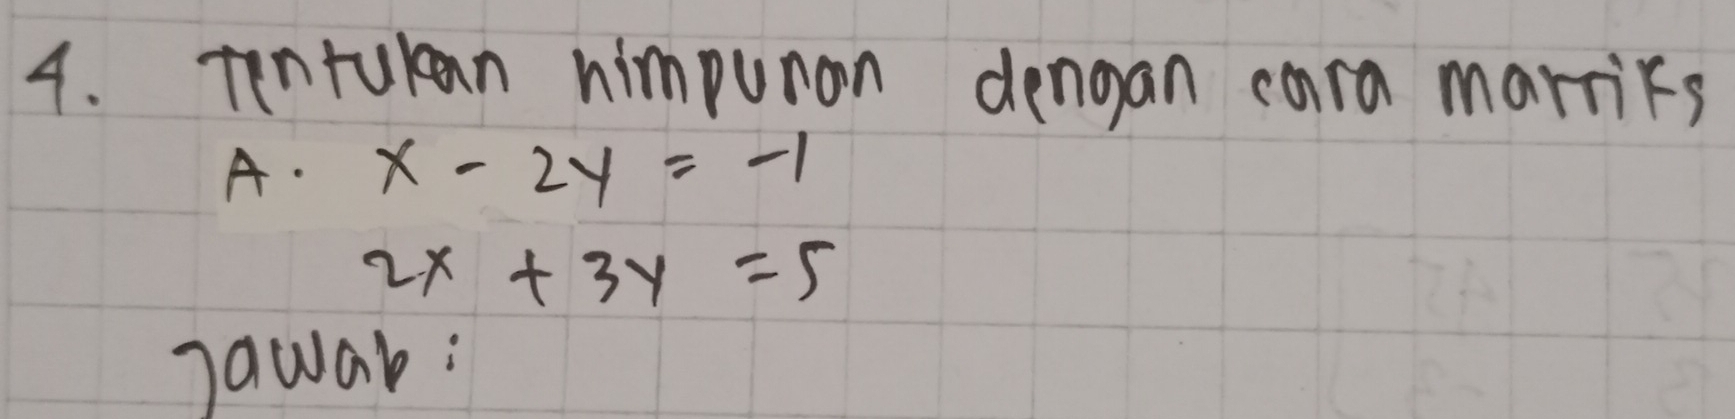 4. Tentukan himpunan dengan cara matriks
A. x - 2y = -1
2x + 3y = 5
Jawab: